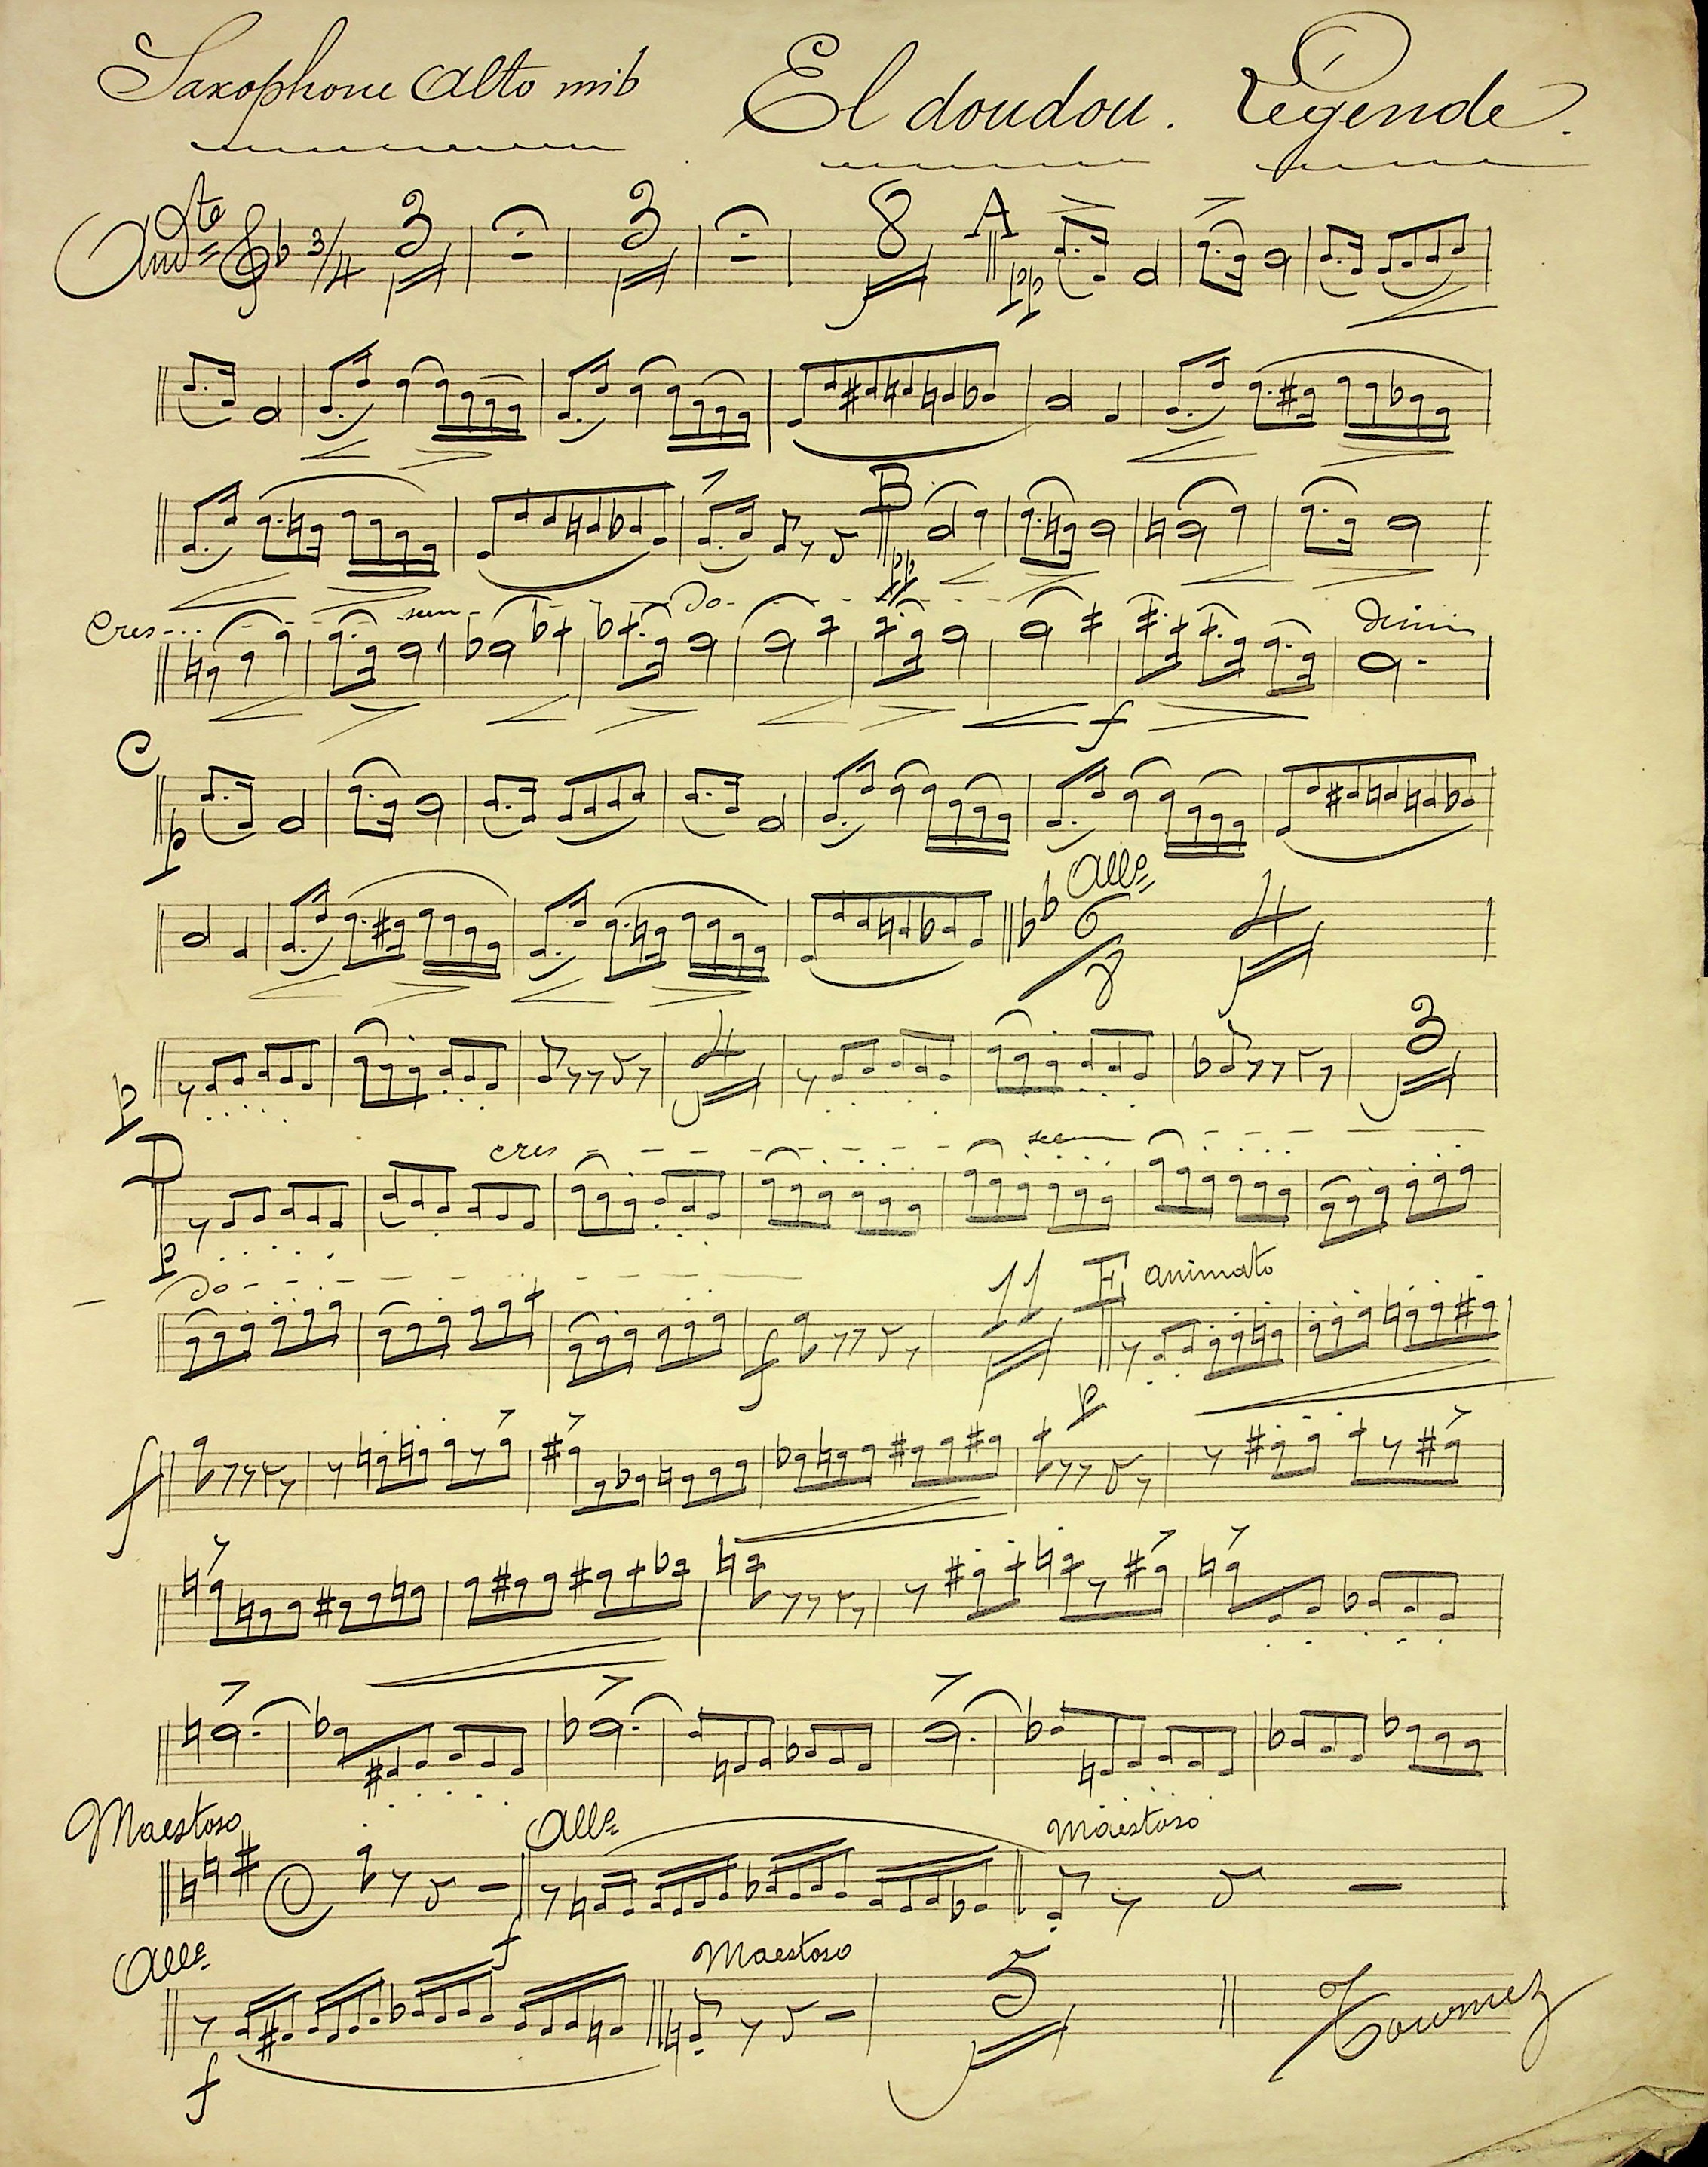 Saxophone Alto mib El doudou. Légende.
Andte 3/4 3 3 8 A
pp
B
pp
Cres - - - scen - - - do - - - Dimin
f
C
p
Allo
6/8 4
p 4 3
D cres - - - scen - - -
p
do - - - 11 E animato
f p
f
Maestoso Allo Maestoso
f
Allo Maestoso 5
f
Tournez